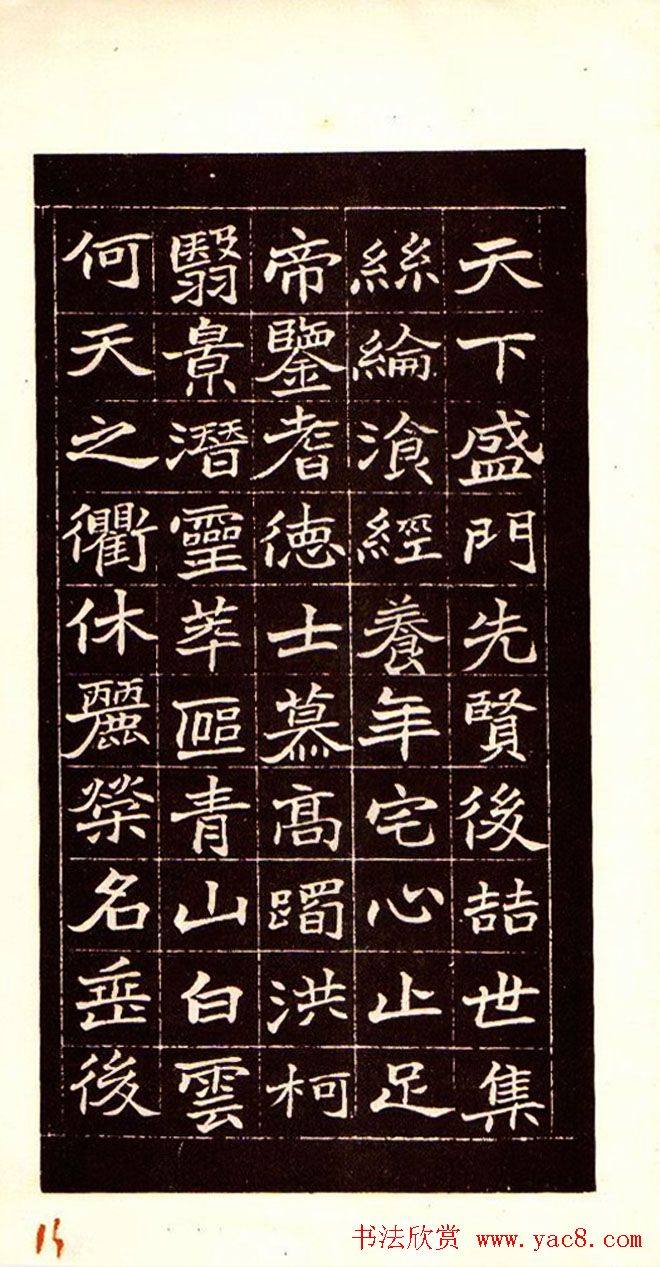 天下盛門先賢後喆世集
絲綸飡經養年宅心止足
帝鑒耆徳士慕高躅洪柯
翳景潛靈萃區青山白雲
何天之衢休麗榮名垂後
15
书法欣赏 www.yac8.com